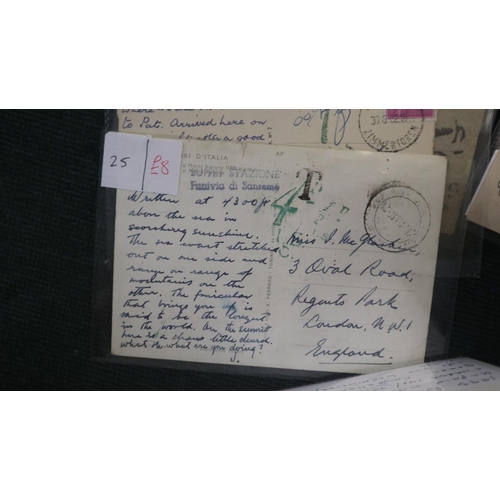 to Pat. Arrived here on
a good
097
ZIMMERTOREN
25
£8
RI D'ITALIA
AF
BUFFET STAZIONE
Funivia di Sanremo
T
4
Written at 4300 ft
above the sea in
scorching sunshine.
The sea coast stretched
out on one side and
range on range of
mountains on the
other. The funicular
that brings you up is
said to be the longest
in the world. On the summit
here is a little church.
What are you doing?
Miss
3 Oval Road,
Regents Park
London. N.W.1
England.